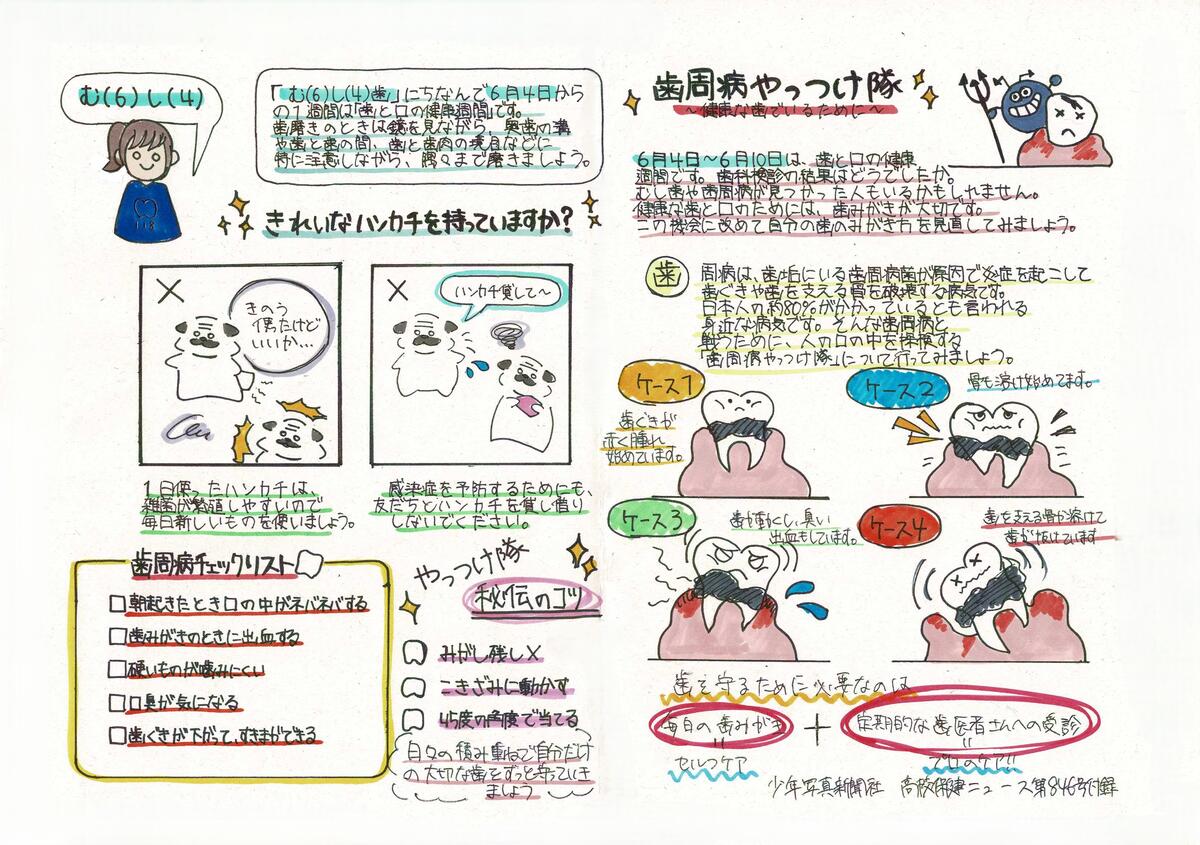 む(6)し(4)
「む(6)し(4)歯」にちなんで6月4日から
の1週間は「歯と口の健康週間」です。
歯磨きのときは鏡を見ながら、奥歯の溝
や歯と歯の間、歯と歯肉の境目などに
特に注意しながら、隅々まで磨きましょう。
きれいなハンカチを持っていますか?
きのう
使ったけど
いいか…
ハンカチ貸して〜
1日使ったハンカチは、
雑菌が繁殖しやすいので
毎日新しいものを使いましょう。
感染症を予防するためにも、
友だちとハンカチを貸し借り
しないでください。
歯周病チェックリスト
朝起きたとき口の中がネバネバする
歯みがきのときに出血する
硬いものが噛みにくい
口臭が気になる
歯ぐきが下がって、すきまができる
やっつけ隊
秘伝のコツ
みがし残し×
こきざみに動かす
45度の角度で当てる
日々の積み重ねで自分だけ
の大切な歯をずっと守っていき
ましょう
歯周病やっつけ隊
〜健康な歯でいるために〜
6月4日〜6月10日は、歯と口の健康
週間です。歯科検診の結果はどうでしたか。
むし歯や歯周病が見つかった人もいるかもしれません。
健康な歯と口のためには、歯みがきが大切です。
この機会に改めて自分の歯のみがき方を見直してみましょう。
歯周病は、歯垢にいる歯周病菌が原因で炎症を起こして
歯ぐきや歯を支える骨を破壊する病気です。
日本人の約80%がかかっているとも言われる
身近な病気です。そんな歯周病と
戦うために、人の口の中を探検する
「歯周病やっつけ隊」について行ってみましょう。
ケース1
歯ぐきが
赤く腫れ
始めています。
ケース2
骨も溶け始めてます。
ケース3
歯が動くし、臭い
出血もしています。
ケース4
歯を支える骨が溶けて
歯が抜けています
歯を守るために必要なのは
毎日の歯みがき + 定期的な歯医者さんへの受診
= =
セルフケア プロのケア!!
少年写真新聞社 高校保健ニュース第846号付録